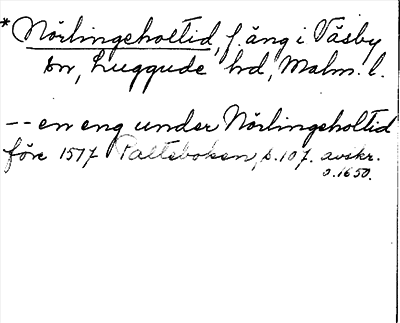 *Nörlingeholtid, f. äng i Väsby
sn, Luggude hd, Malm. l.
-- en eng under Nörlingsholtid
före 1577 Paltsboken, s. 107. avskr.
o. 1650.